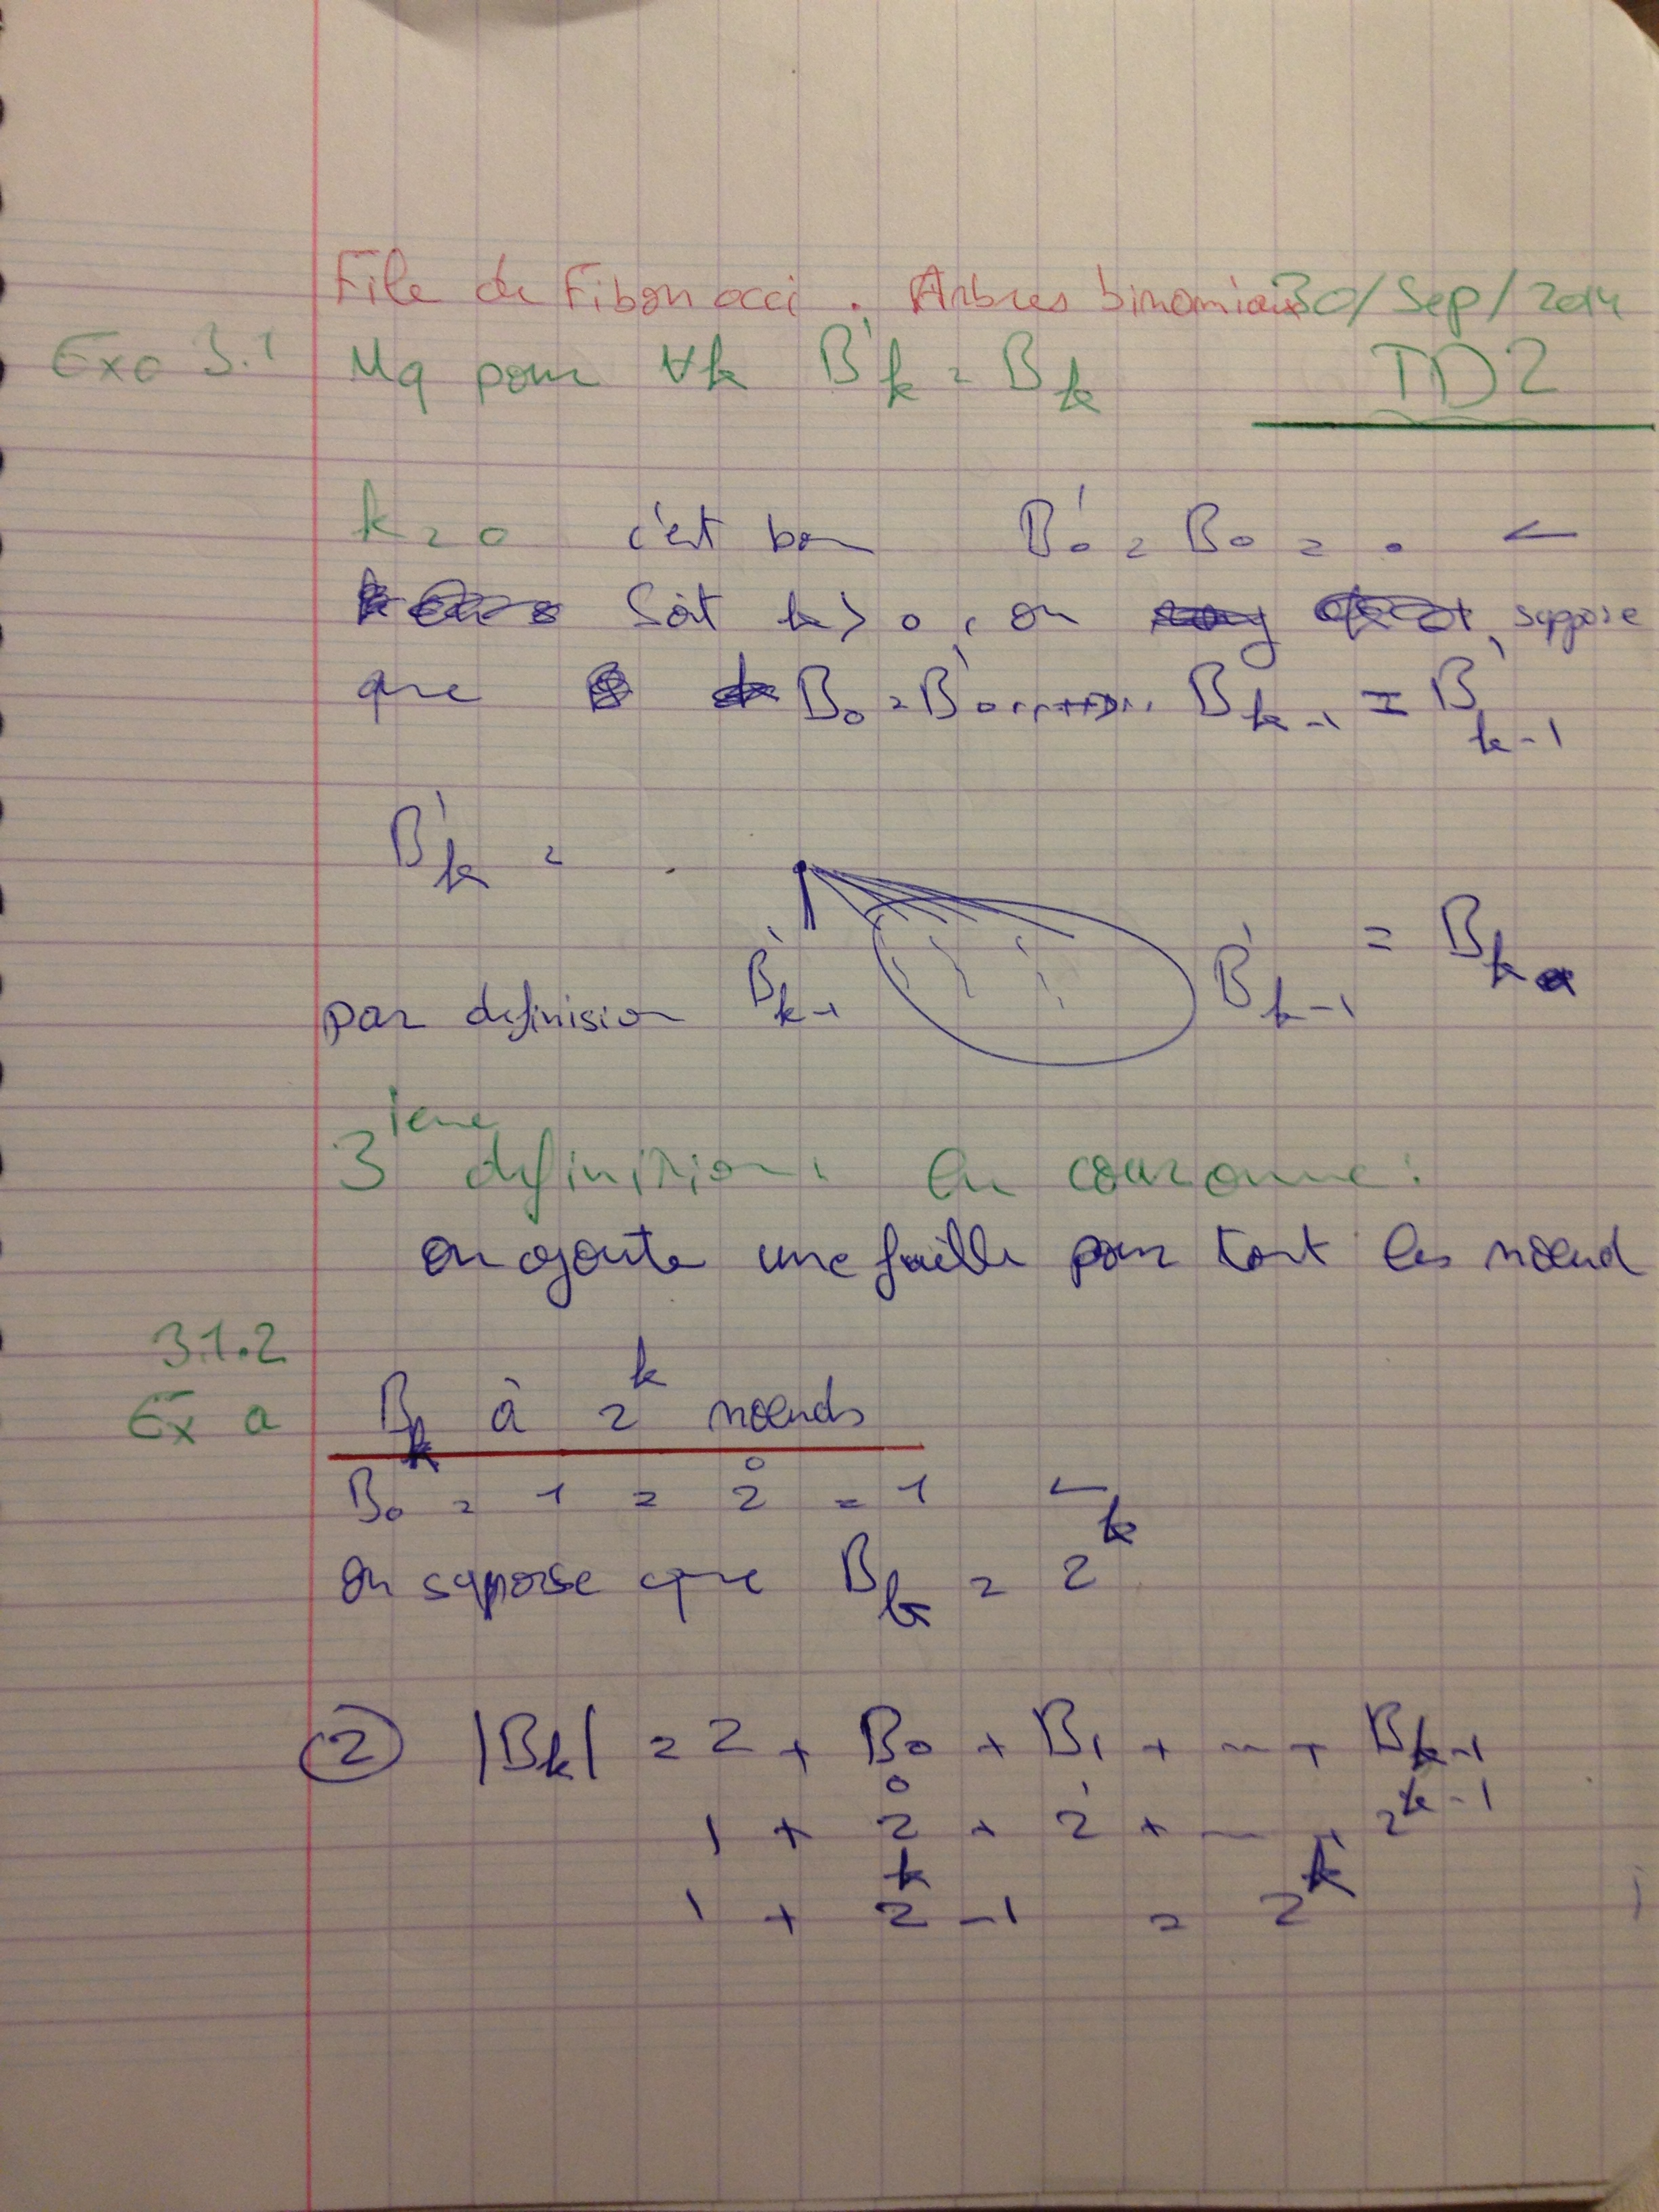 File de Fibonacci . Arbres binomiaux 30/Sep/2014
Exo 3.1 Mq pour ∀k B'k = Bk TD2
k = 0 c'est bon B'0 = B0 = . ←
Soit k > 0, on suppose
que B0 = B'0 ...... Bk-1 = B'k-1
B'k =
par definision B'k-1 B'k-1 = Bk
3ieme definition: en couronne:
on ajoute une feuille pour tout les nœud
3.1.2
Ex a Bk à 2^k nœuds
B0 = 1 = 2^0 = 1 ←
on sppose que Bk = 2^k
② |Bk| = 2 + B0 + B1 + ... + Bk-1
1 + 2^0 + 2^1 + ... + 2^k-1
1 + 2^k - 1 = 2^k